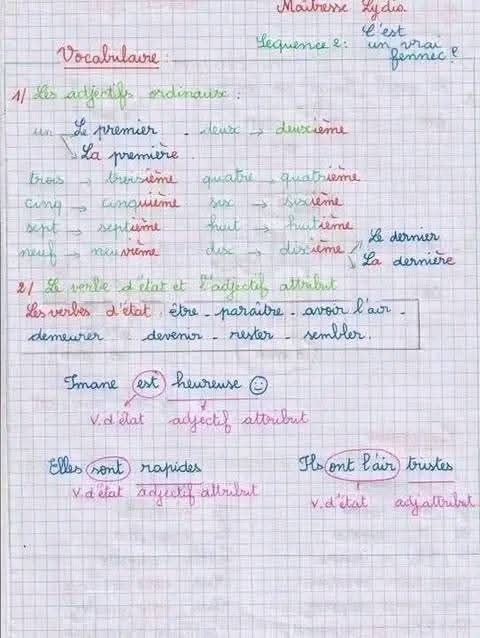 Maîtresse Lydia
Séquence 2: C'est
un vrai
fennec ?
Vocabulaire :
1/ Les adjectifs ordinaux :
un → Le premier - deux → deuxième
La première.
trois → troisième quatre → quatrième
cinq → cinquième six → sixième
sept → septième huit → huitième
neuf → neuvième dix → dixième Le dernier
La dernière
2/ Le verbe d'état et l'adjectif attribut
Les verbes d'état : être - paraître - avoir l'air -
demeurer - devenir - rester - sembler.
Imane est heureuse ☺
v.d'état adjectif attribut
Elles sont rapides Ils ont l'air tristes
v.d'état adjectif attribut v.d'état adj attribut